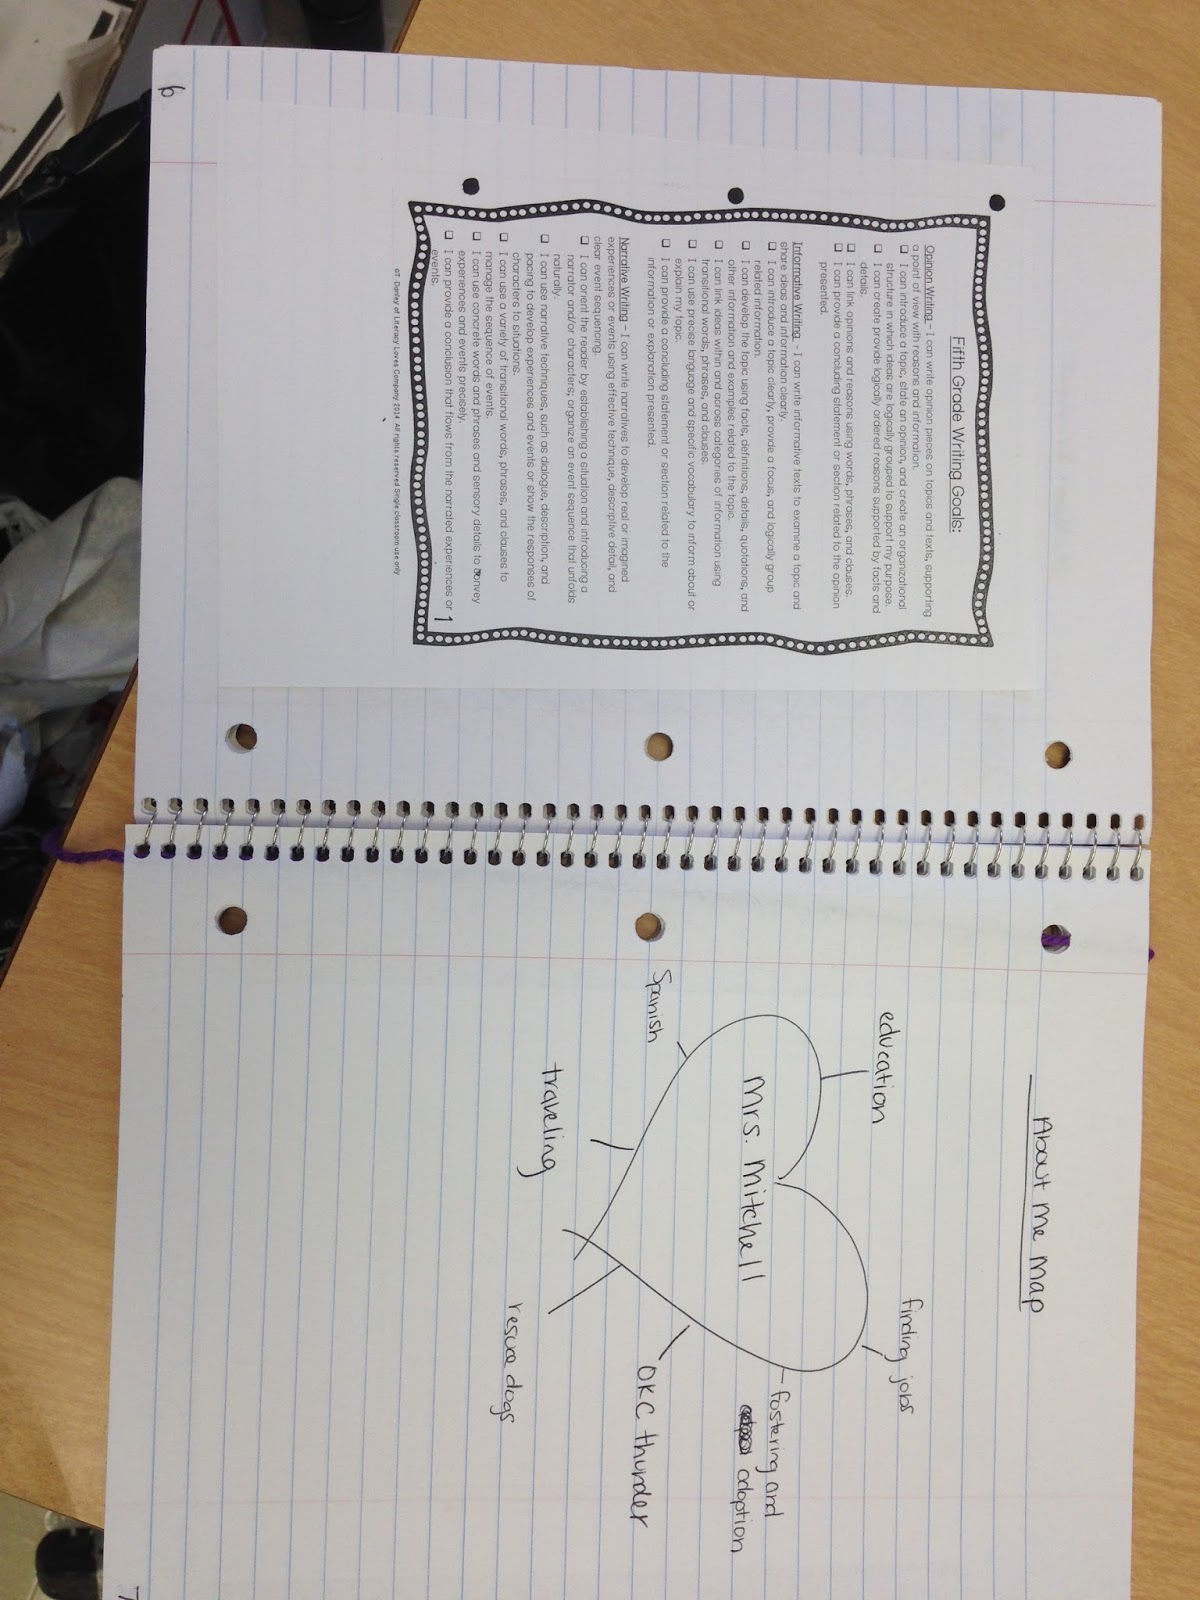 Fifth Grade Writing Goals:
Opinion Writing – I can write opinion pieces on topics and texts, supporting
a point of view with reasons and information.
I can introduce a topic, state an opinion, and create an organizational
structure in which ideas are logically grouped to support my purpose.
I can create provide logically ordered reasons supported by facts and
details.
I can link opinions and reasons using words, phrases, and clauses.
I can provide a concluding statement or section related to the opinion
presented.
Informative Writing - I can write informative texts to examine a topic and
share ideas and information clearly.
I can introduce a topic clearly, provide a focus, and logically group
related information.
I can develop the topic using facts, definitions, details, quotations, and
other information and examples related to the topic.
I can link ideas within and across categories of information using
transitional words, phrases, and clauses.
I can use precise language and specific vocabulary to inform about or
explain my topic.
I can provide a concluding statement or section related to the
information or explanation presented.
Narrative Writing – I can write narratives to develop real or imagined
experiences or events using effective technique, descriptive detail, and
clear event sequencing.
I can orient the reader by establishing a situation and introducing a
narrator and/or characters; organize an event sequence that unfolds
naturally.
I can use narrative techniques, such as dialogue, description, and
pacing to develop experiences and events or show the responses of
characters to situations.
I can use a variety of transitional words, phrases, and clauses to
manage the sequence of events.
I can use concrete words and phrases and sensory details to convey
experiences and events precisely.
I can provide a conclusion that flows from the narrated experiences or
events.
1
Danley of Literacy Loves Company 2014 All rights reserved Single classroom use only
6
About Me Map
education
finding jobs
Mrs. Mitchell
fostering and
adoption
Spanish
OKC thunder
traveling
rescue dogs
7